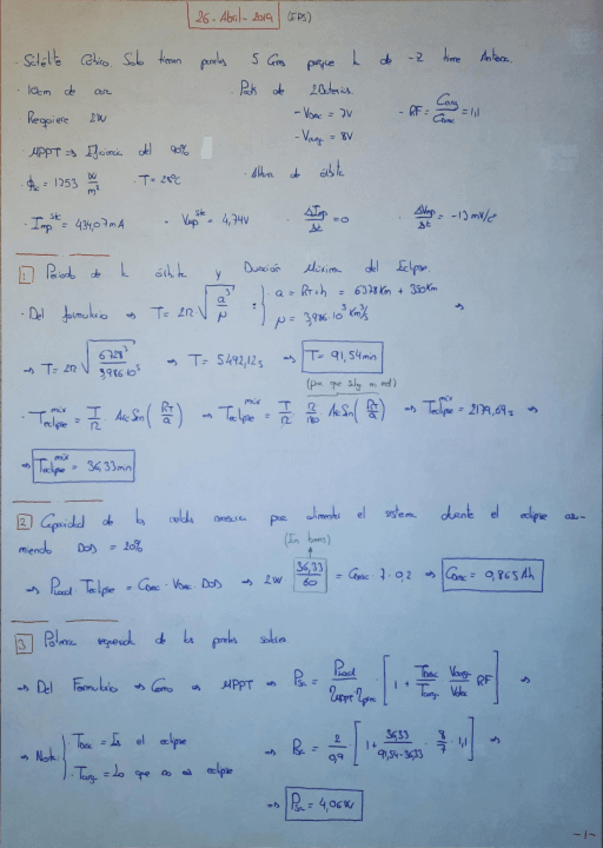 26-Abril-2019 (EPS)
· Satélite Cúbico. Solo tienen paneles 5 Caras porque la de -Z tiene Antena.
· 10cm de · Pack de 2 Baterías.
Requiere 2W - Vdesc = 7V - RF = Ccarg/Cdesc = 1,1
- Vcarg = 8V
· MPPT => Eficiencia del 90%
· T = 28°C · Altura de órbita
· Imp = 434,07mA · Vmp = 4,74V · ΔImp/Δt = 0 · ΔVmp/Δt = -13 mV/°C
1 Periodo de la órbita y Duración Máxima del Eclipse.
· Del formulario => T = 2π √(a³/μ) = { · a = RT+h = 6378Km + 350Km =>
· μ = 3,986·10⁵ Km³/s
=> T = 2π √(6728³/3,986·10⁵) => T = 5492,12s => T = 91,54min
(para que salga en rad)
· Teclipse máx = T/π · ArcSen(RT/a) => Teclipse máx = T/π · π/180 ArcSen(RT/a) => Teclipse máx = 2179,69s =>
=> Teclipse máx = 36,33min
2 Capacidad de las celdas necesaria para alimentar el sistema durante el eclipse asu-
miendo DOD = 20% (En horas)
=> Pload · Teclipse = Cdesc · Vdesc · DOD => 2W · 36,33/60 = Cdesc · 7 · 0,2 => Cdesc = 0,865Ah
3 Potencia requerida de los paneles solares.
=> Del Formulario => Como es MPPT => Psa = Pload/(ηMPPT ηproc) · [1 + Tdesc/Tcarg Vcarg/Vdesc RF] =>
=> Nota: { · Tdesc = Es el eclipse => Psa = 2/0,9 [1 + 36,33/(91,54-36,33) · 8/7 · 1,1] =>
· Tcarg = Lo que no es eclipse
=> Psa = 4,06W
-1-